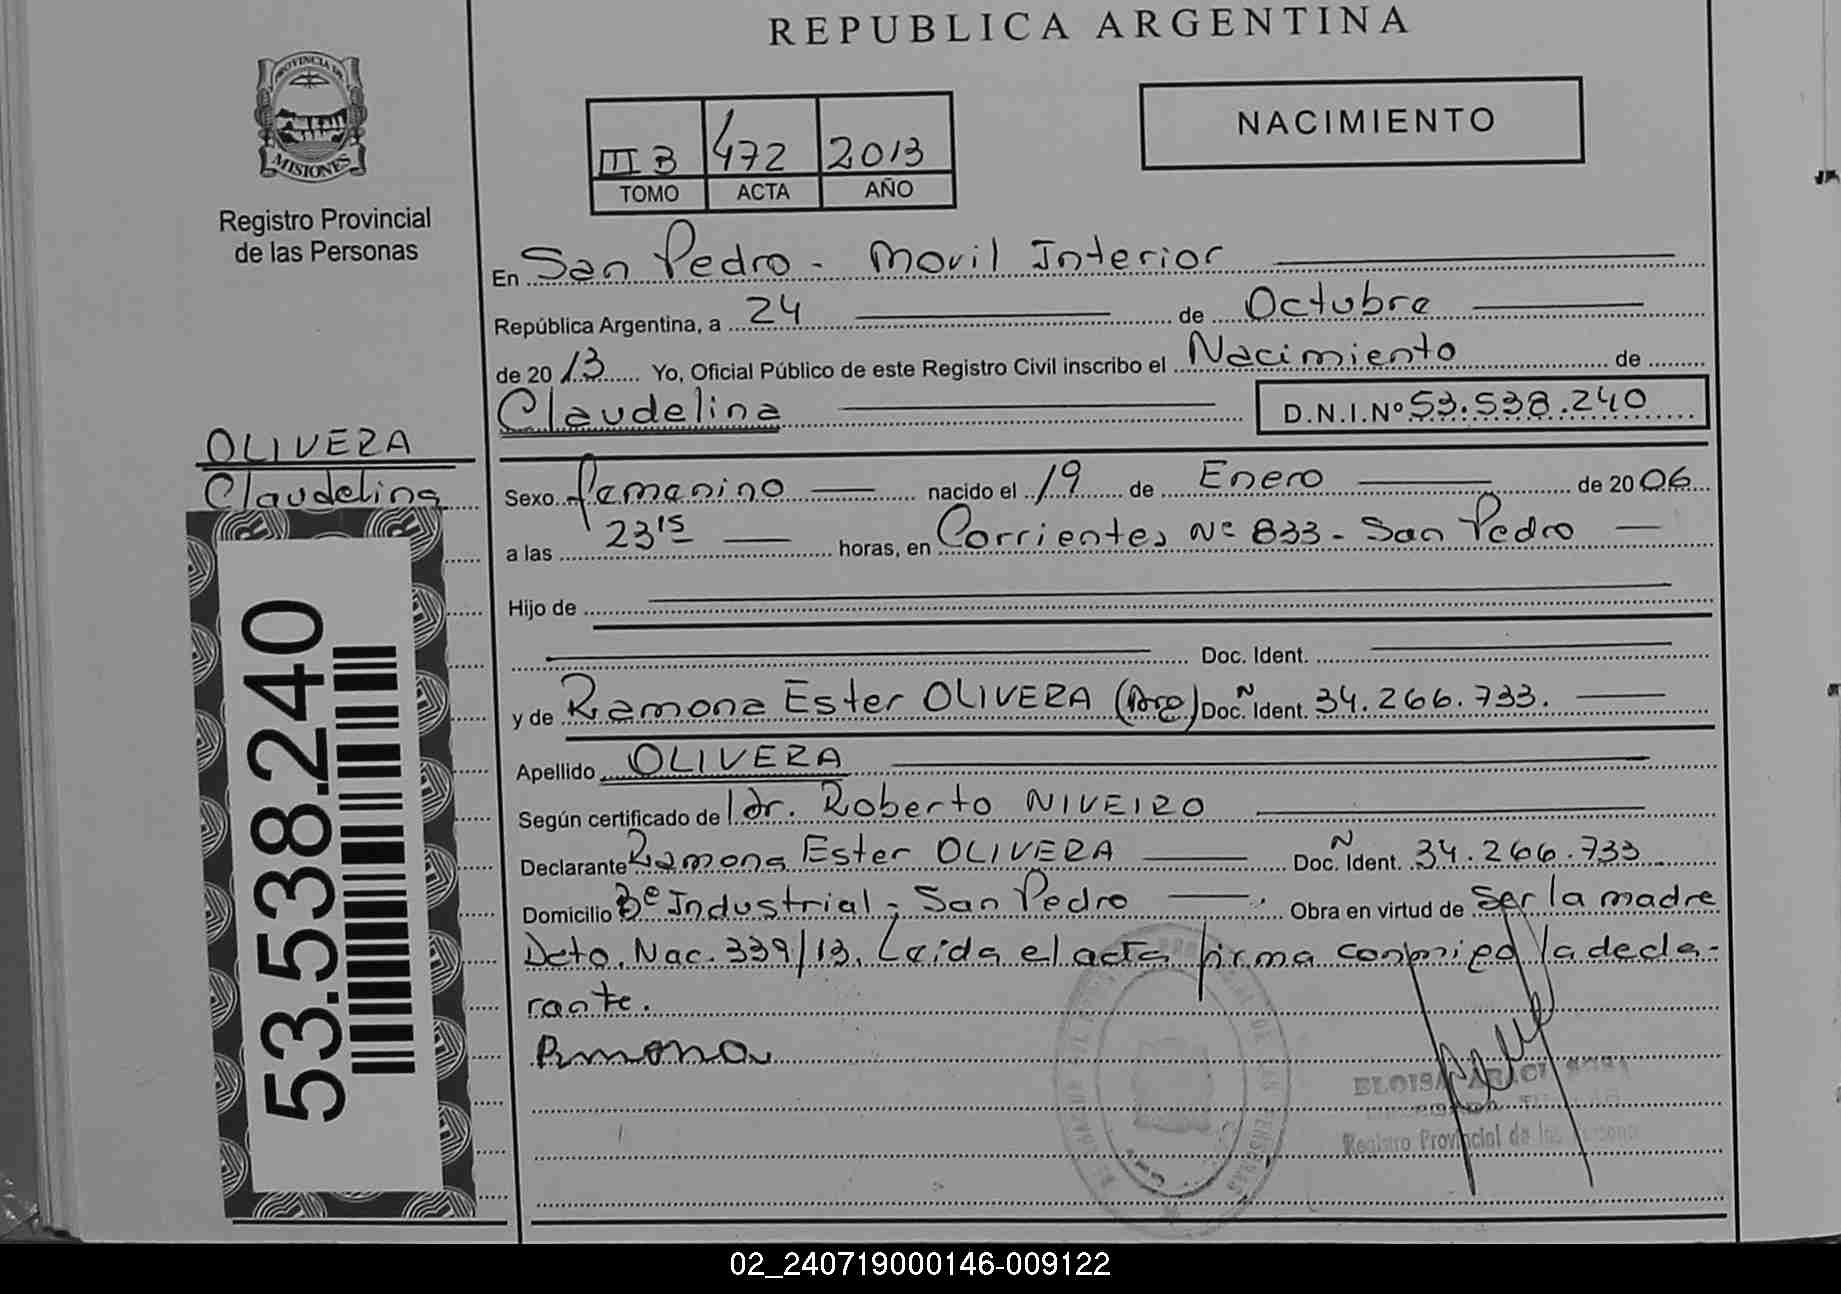 REPUBLICA ARGENTINA
PROVINCIA DE
MISIONES
Registro Provincial
de las Personas
III B 472 2013
TOMO ACTA AÑO
NACIMIENTO
En San Pedro - Movil Interior
República Argentina, a 24 de Octubre
de 2013 Yo, Oficial Público de este Registro Civil inscribo el Nacimiento de
Claudelina D.N.I.Nº 53.538.240
OLIVERA
Claudelina
53.538.240
Sexo femenino nacido el 19 de Enero de 2006
a las 23 15 horas, en Corrientes Nº 833 - San Pedro
Hijo de
Doc. Ident.
y de Ramona Ester OLIVERA (Arg) Doc. Ñ Ident. 34.266.733.
Apellido OLIVERA
Según certificado de Dr. Roberto NIVEIRO
Declarante Ramona Ester OLIVERA Doc. Ñ Ident. 34.266.733
Domicilio Bº Industrial - San Pedro Obra en virtud de ser la madre
Dcto. Nac. 339/13. Leida el acta firma conmigo la decla-
rante.
Ramona
ELOISA
Registro Provincial de las
02_240719000146-009122